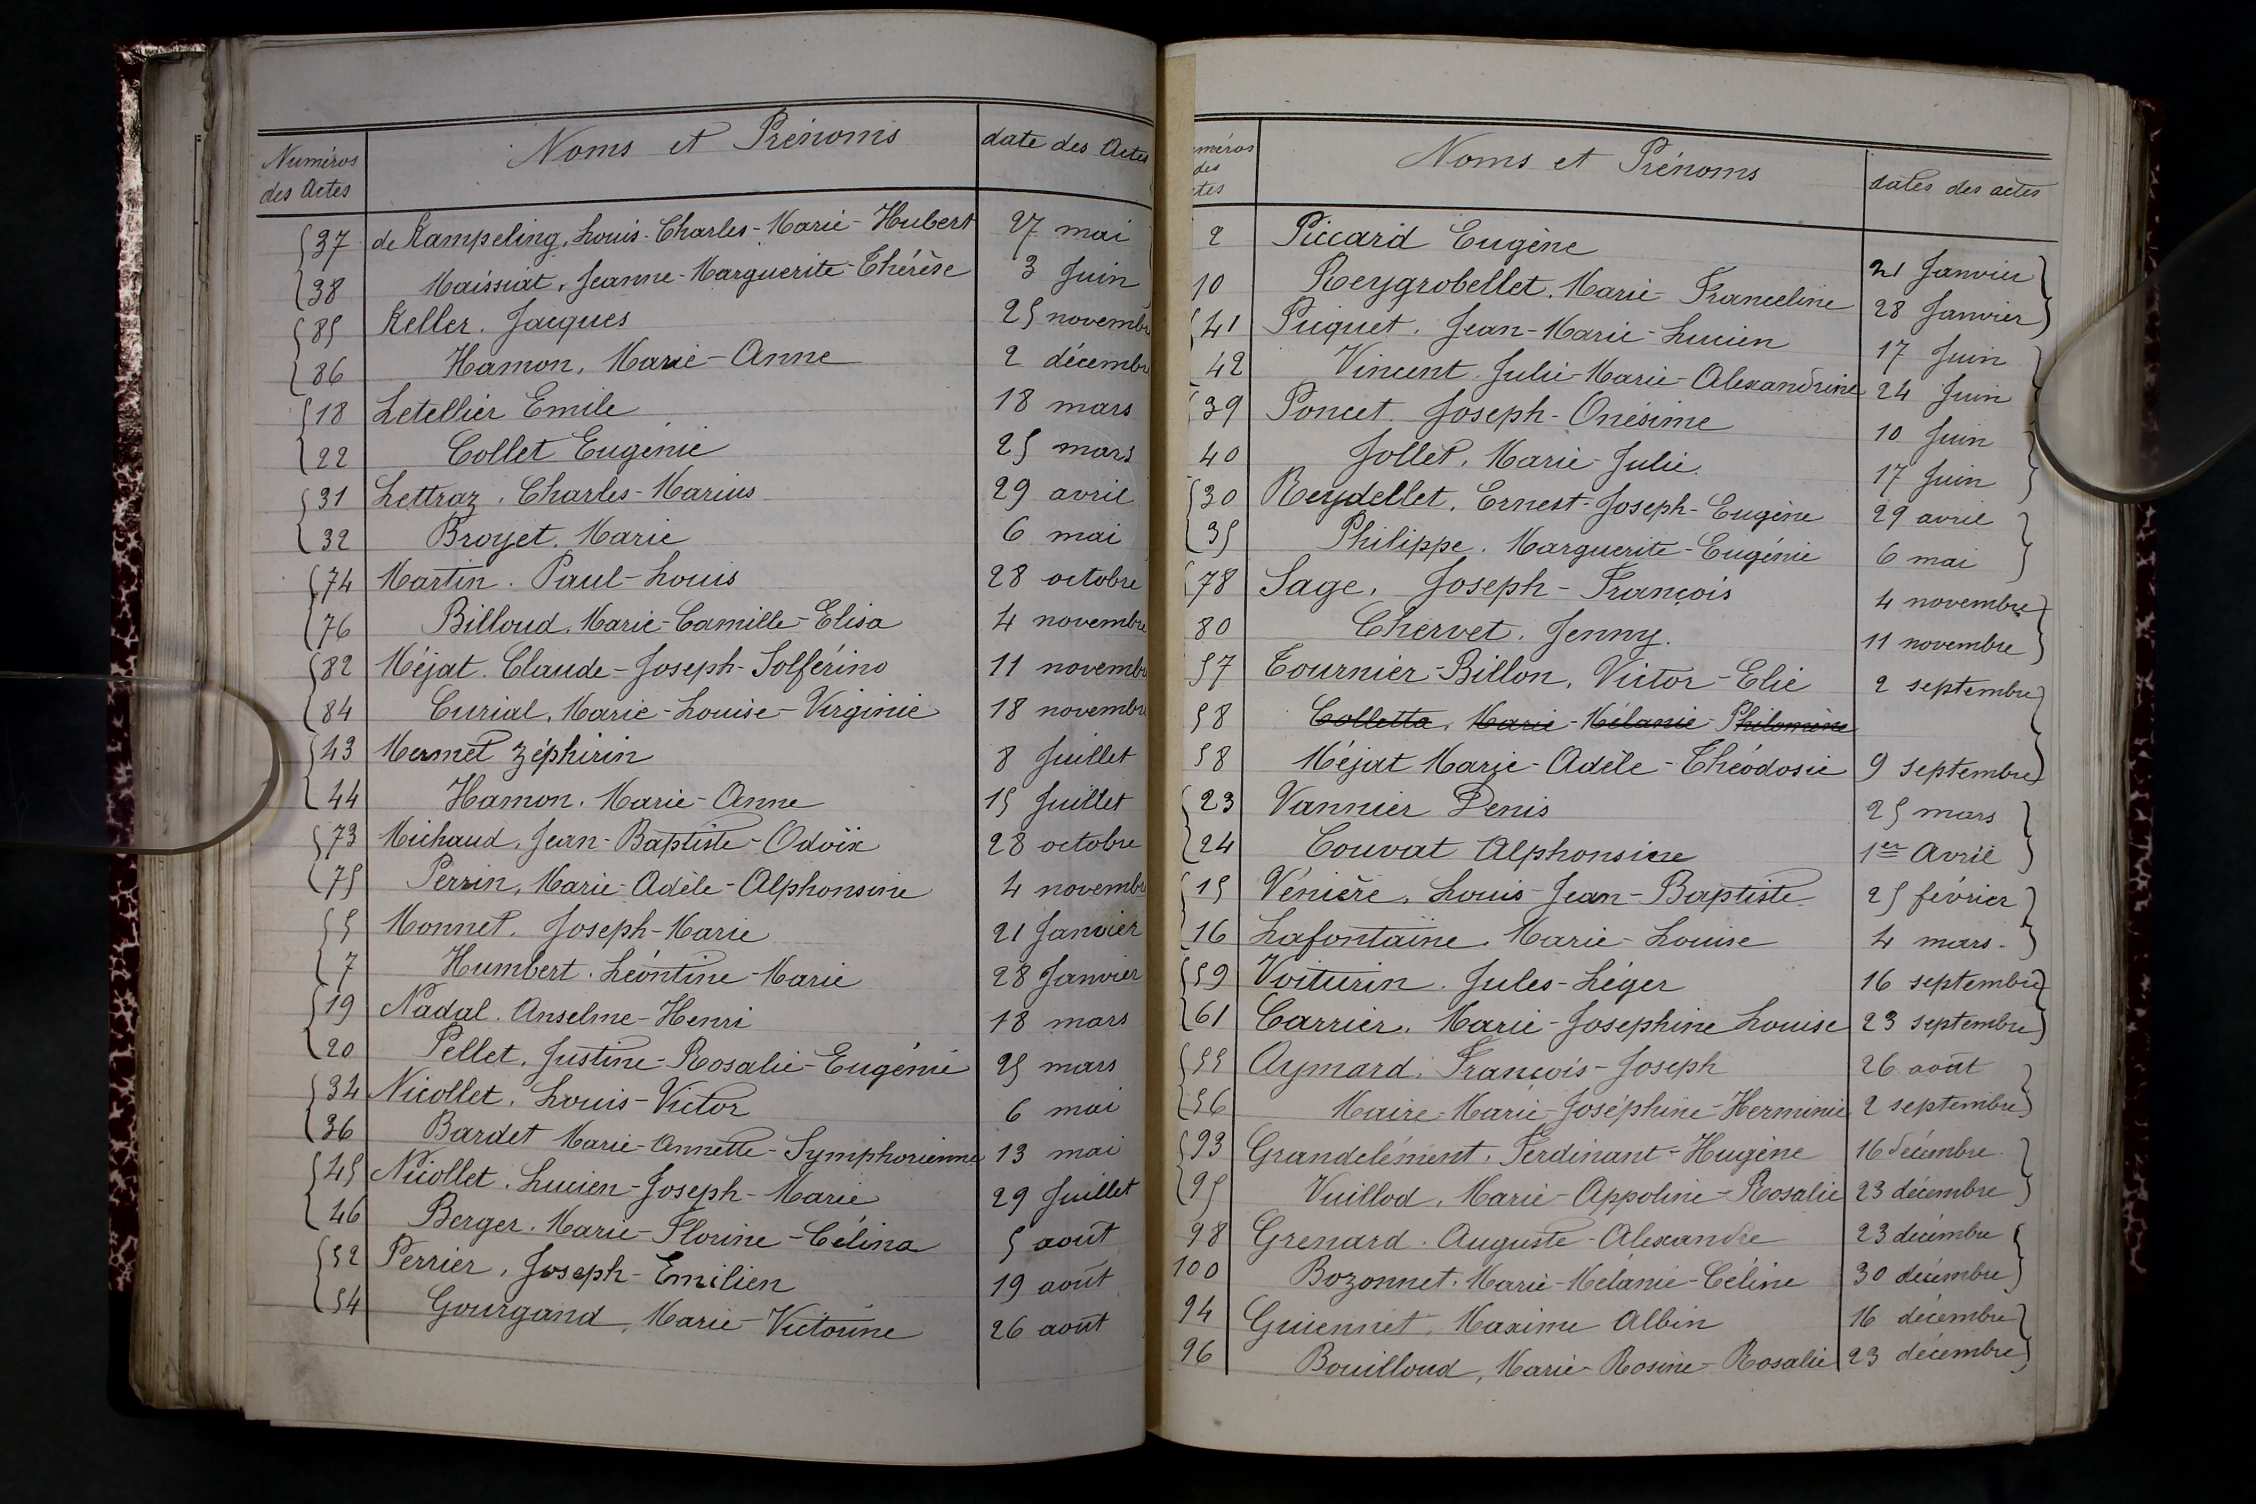 Numéros
des Actes
Noms et Prénoms
date des Actes
37 de Kampeling, Louis-Charles-Marie-Hubert 27 mai
38 Maissiat, Jeanne-Marguerite-Thérèse 3 Juin
85 Keller. Jacques 25 novembre
86 Hamon, Marie-Anne 2 décembre
18 Letellier Emile 18 mars
22 Collet Eugénie 25 mars
31 Lettraz, Charles-Marius 29 avril
32 Broyet. Marie 6 mai
74 Martin. Paul-Louis 28 octobre
76 Billoud. Marie-Camille-Elisa 4 novembre
82 Méjat. Claude-Joseph-Solférino 11 novembre
84 Curial, Marie-Louise-Virginie 18 novembre
43 Mermet Zéphirin 8 Juillet
44 Hamon. Marie-Anne 15 Juillet
73 Michaud, Jean-Baptiste-Odoïx 28 octobre
75 Perrin, Marie-Adèle-Alphonsine 4 novembre
5 Monnet. Joseph-Marie 21 Janvier
7 Humbert. Léontine-Marie 28 Janvier
19 Nadal. Anselme-Henri 18 mars
20 Pellet, Justine-Rosalie-Eugénie 25 mars
34 Nicollet, Louis-Victor 6 mai
36 Bardet Marie-Annette-Symphorienne 13 mai
45 Nicollet, Lucien-Joseph-Marie 29 Juillet
46 Berger. Marie-Florine-Célina 5 août
52 Perrier, Joseph-Emilien 19 août
54 Gourgand, Marie-Victorine 26 août
uméros
des
ctes
Noms et Prénoms
dates des actes
2 Piccard Eugène 21 Janvier
10 Reygrobellet. Marie-Franceline 28 Janvier
41 Picquet, Jean-Marie-Lucien 17 Juin
42 Vincent. Julie-Marie-Alexandrine 24 Juin
39 Poncet. Joseph-Onésime 10 Juin
40 Jollet, Marie-Julie 17 Juin
30 Reydellet, Ernest-Joseph-Eugène 29 avril
35 Philippe. Marguerite-Eugénie 6 mai
78 Sage, Joseph-François 4 novembre
80 Chervet, Jenny. 11 novembre
57 Tournier-Billon, Victor-Elie 2 septembre
58 Colletta, Marie-Mélanie-Philomène
58 Méjat Marie-Adèle-Théodosie 9 septembre
23 Vannier Denis 25 mars
24 Couvat Alphonsine 1er Avril
15 Vénière, Louis-Jean-Baptiste 25 février
16 Lafontaine Marie-Louise 4 mars.
59 Voiturin. Jules-Léger 16 septembre
61 Carrier, Marie-Josephine Louise 23 septembre
55 Aymard. François-Joseph 26 août
56 Maire-Marie-Joséphine-Herminie 2 septembre
93 Grandclément, Ferdinant-Hugène 16 décembre
95 Vuillod, Marie-Appoline-Rosalie 23 décembre
98 Grenard. Auguste-Alexandre 23 décembre
100 Bozonnet. Marie-Mélanie-Céline 30 décembre
94 Guiennet, Maxime Albin 16 décembre
96 Bouilloud, Marie-Rosine-Rosalie 23 décembre